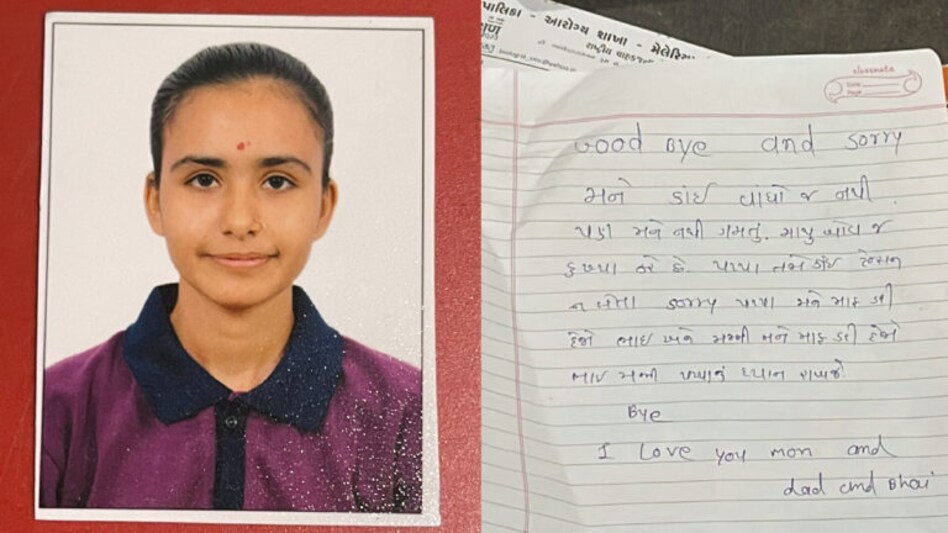 પાલિકા - આરોગ્ય શાખા - મેલેરિયા
classmate
Date
Page
Good Bye and Sorry
મને કાંઈ વાંધો જ નથી.
પણ મને નથી ગમતું. માથુ બોવ જ
દુખ્યા કરે છે. પાપા તમે કાંઈ ટેન્સન
ન લેતા Sorry પાપા મને માફ કરી
દેજો ભાઈ અને મમ્મી મને માફ કરી દેજો
ભાઈ મમ્મી પાપાનું ધ્યાન રાખજે
Bye
I Love you mom and
dad and Bhai